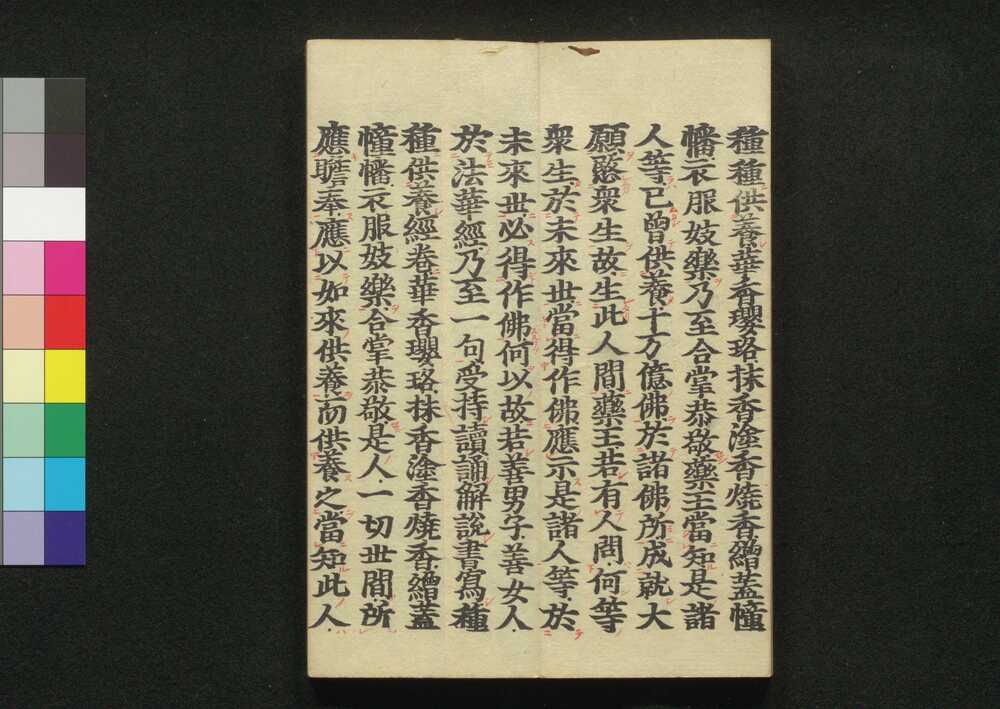 種種供養華香瓔珞抹香塗香燒香繒蓋幢
幡衣服妓樂乃至合掌恭敬藥王當知是諸
人等已曾供養十万億佛於諸佛所成就大
願愍衆生故生此人間藥王若有人問何等
衆生於未來世當得作佛應示是諸人等於
未來世必得作佛何以故若善男子善女人
於法華經乃至一句受持讀誦解説書寫種
種供養經卷華香瓔珞抹香塗香燒香繒蓋
幢幡衣服妓樂合掌恭敬是人一切世間所
應瞻奉應以如來供養而供養之當知此人